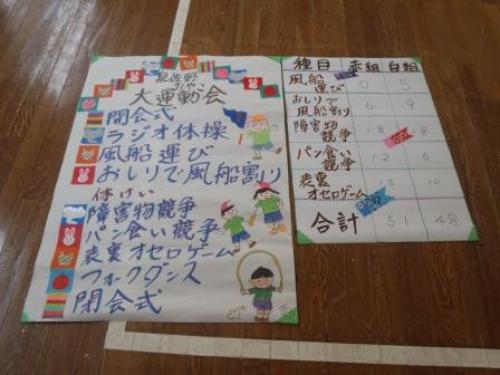 泉佐野
おや
大運動会
開会式
ラジオ体操
風船運び
おしりで風船割り
休けい
障害物競争
パン食い競争
表裏オセロゲーム
フォークダンス
閉会式
種目 赤組 白組
風船運び 0 5
おしりで風船割り 6 9
障害物競争 18 18
パン食い競争 12 6
表裏オセロゲーム 15 10
合計 51 48